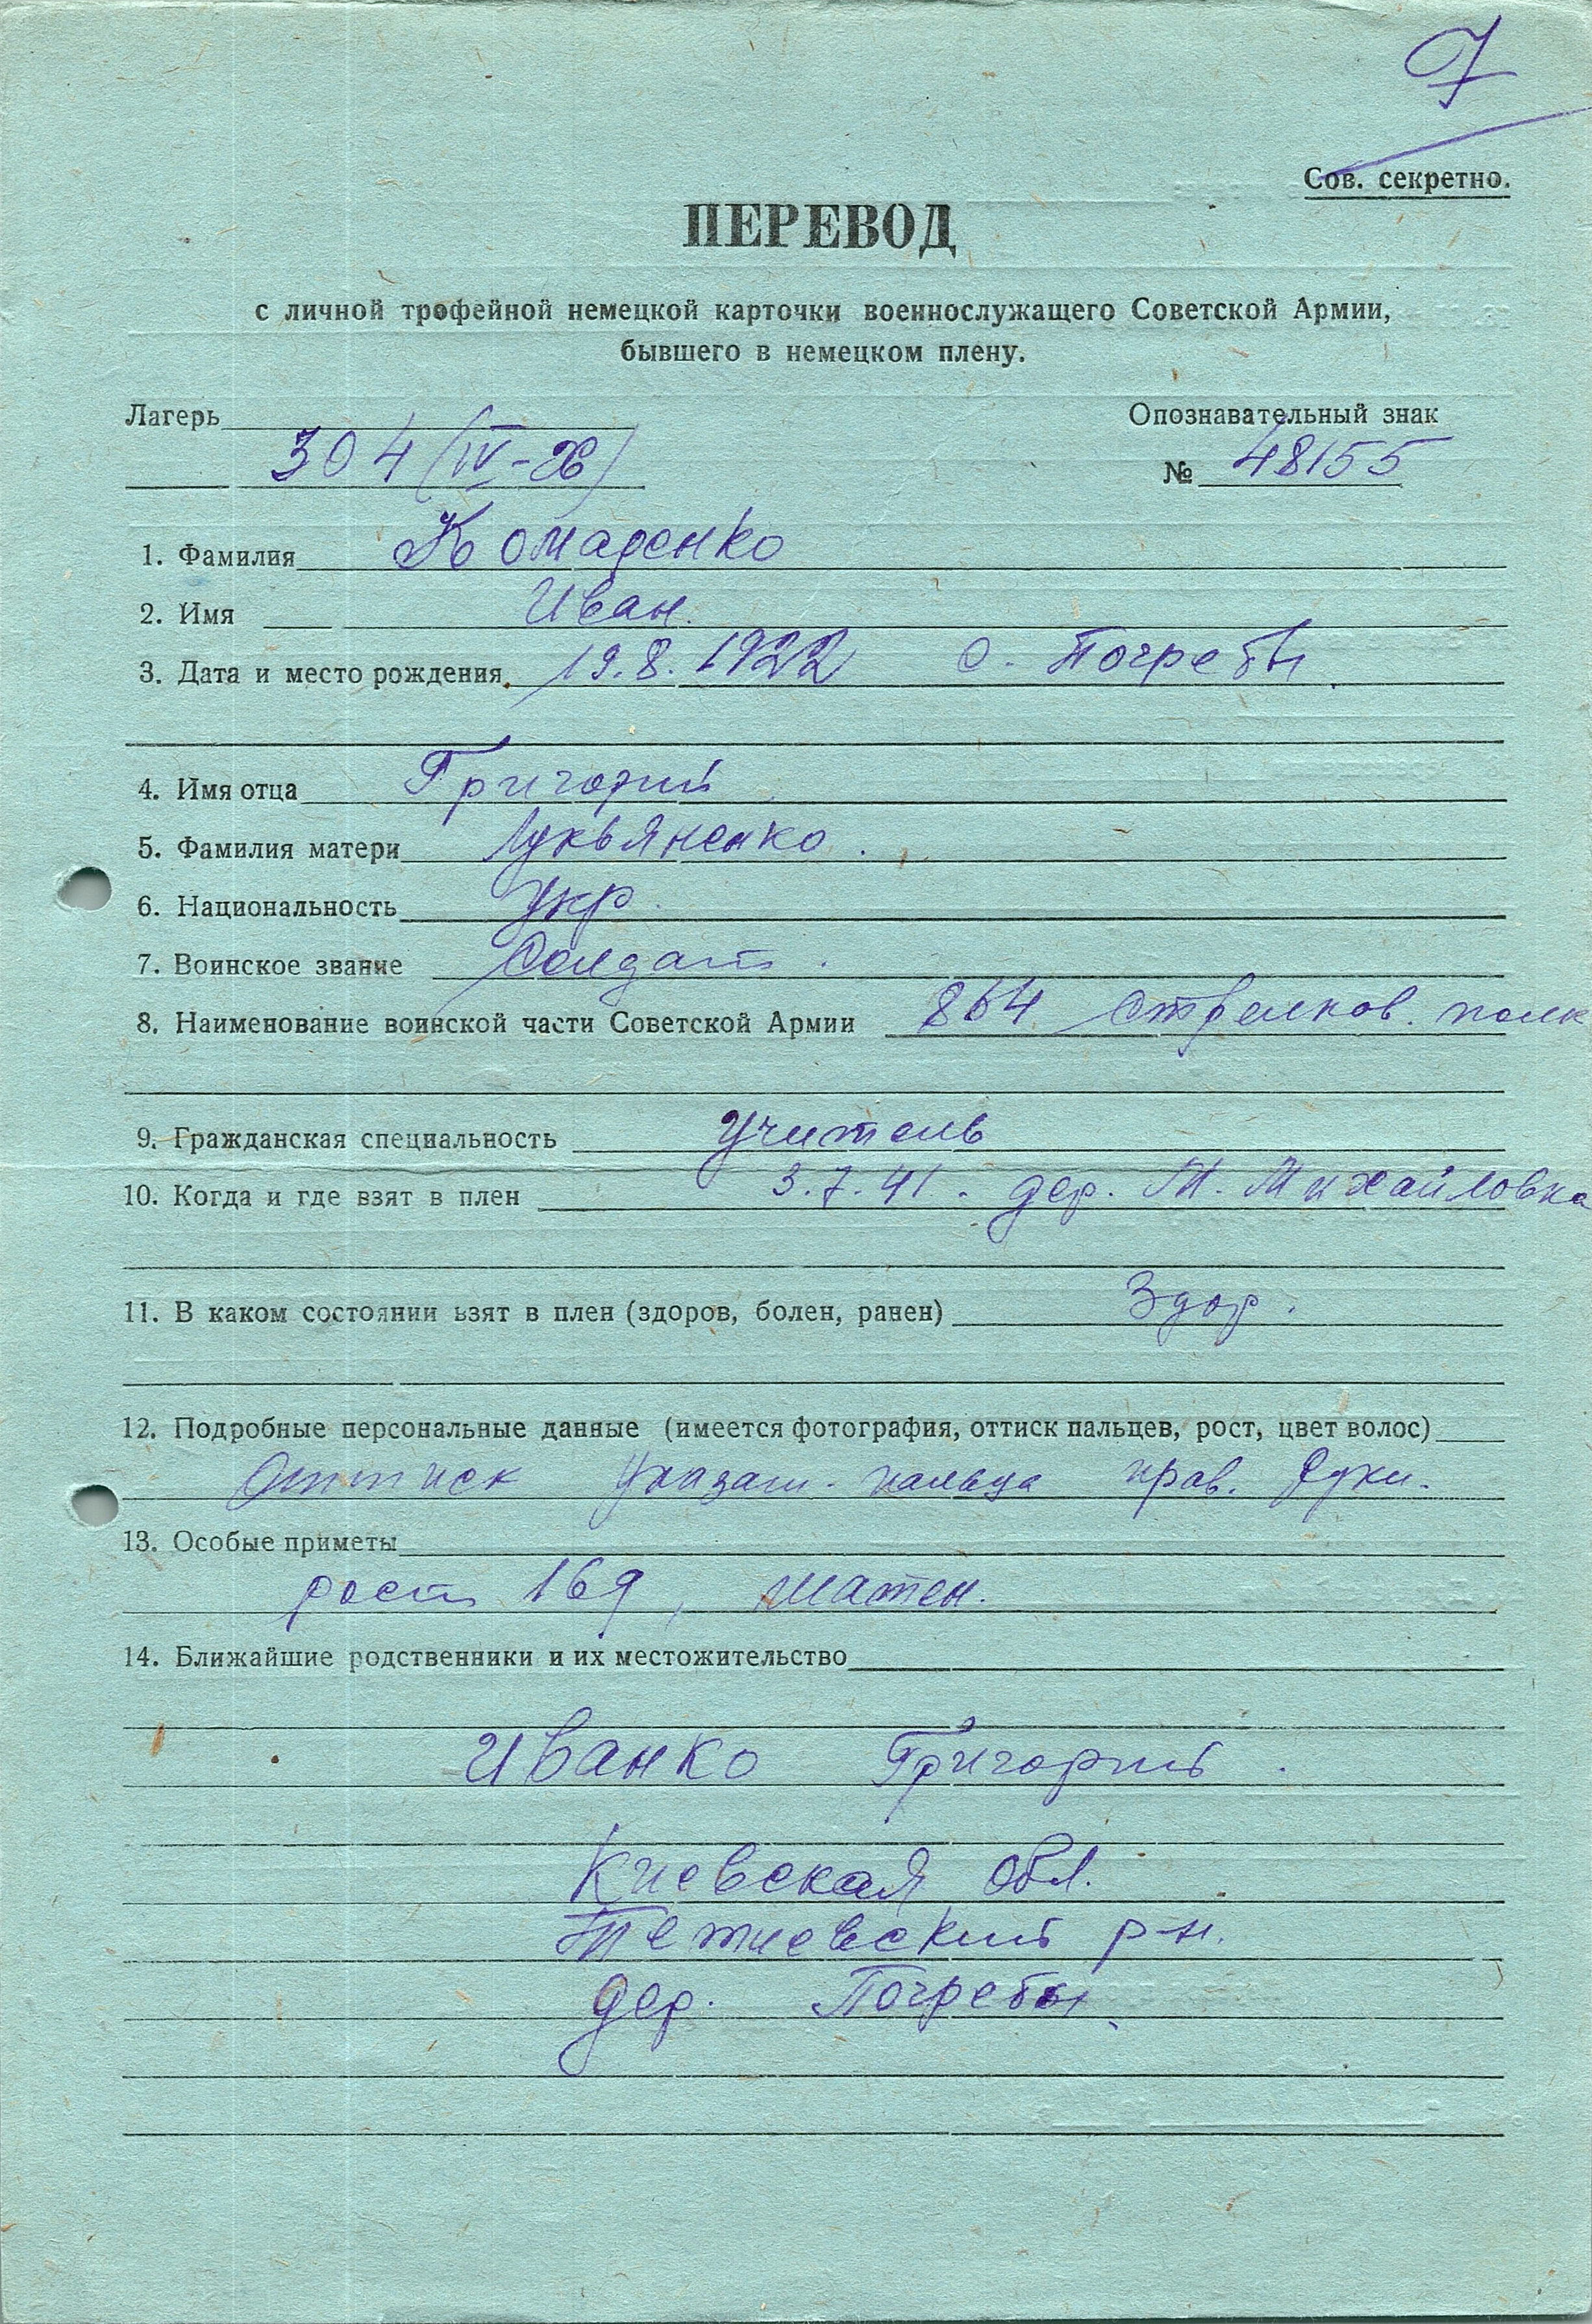 7
Сов. секретно.
ПЕРЕВОД
с личной трофейной немецкой карточки военнослужащего Советской Армии,
бывшего в немецком плену.
Лагерь
Опознавательный знак
304 (IV-
№ 48155
1. Фамилия Комаренко
2. Имя Иван.
3. Дата и место рождения. 19.8.1922 с. Погребы
4. Имя отца Григорий
5. Фамилия матери Лукьяненко.
6. Национальность Укр.
7. Воинское звание Солдат.
8. Наименование воинской части Советской Армии 864 стрелков. полк
9. Гражданская специальность учитель
10. Когда и где взят в плен 3.7.41. дер. Михайловка
11. В каком состоянии взят в плен (здоров, болен, ранен) Здор.
12. Подробные персональные данные (имеется фотография, оттиск пальцев, рост, цвет волос)
Оттиск указат. пальца прав. руки.
13. Особые приметы
рост 169, шатен.
14. Ближайшие родственники и их местожительство
Иванко Григорий.
Киевская обл.
р-н.
дер. Погребы